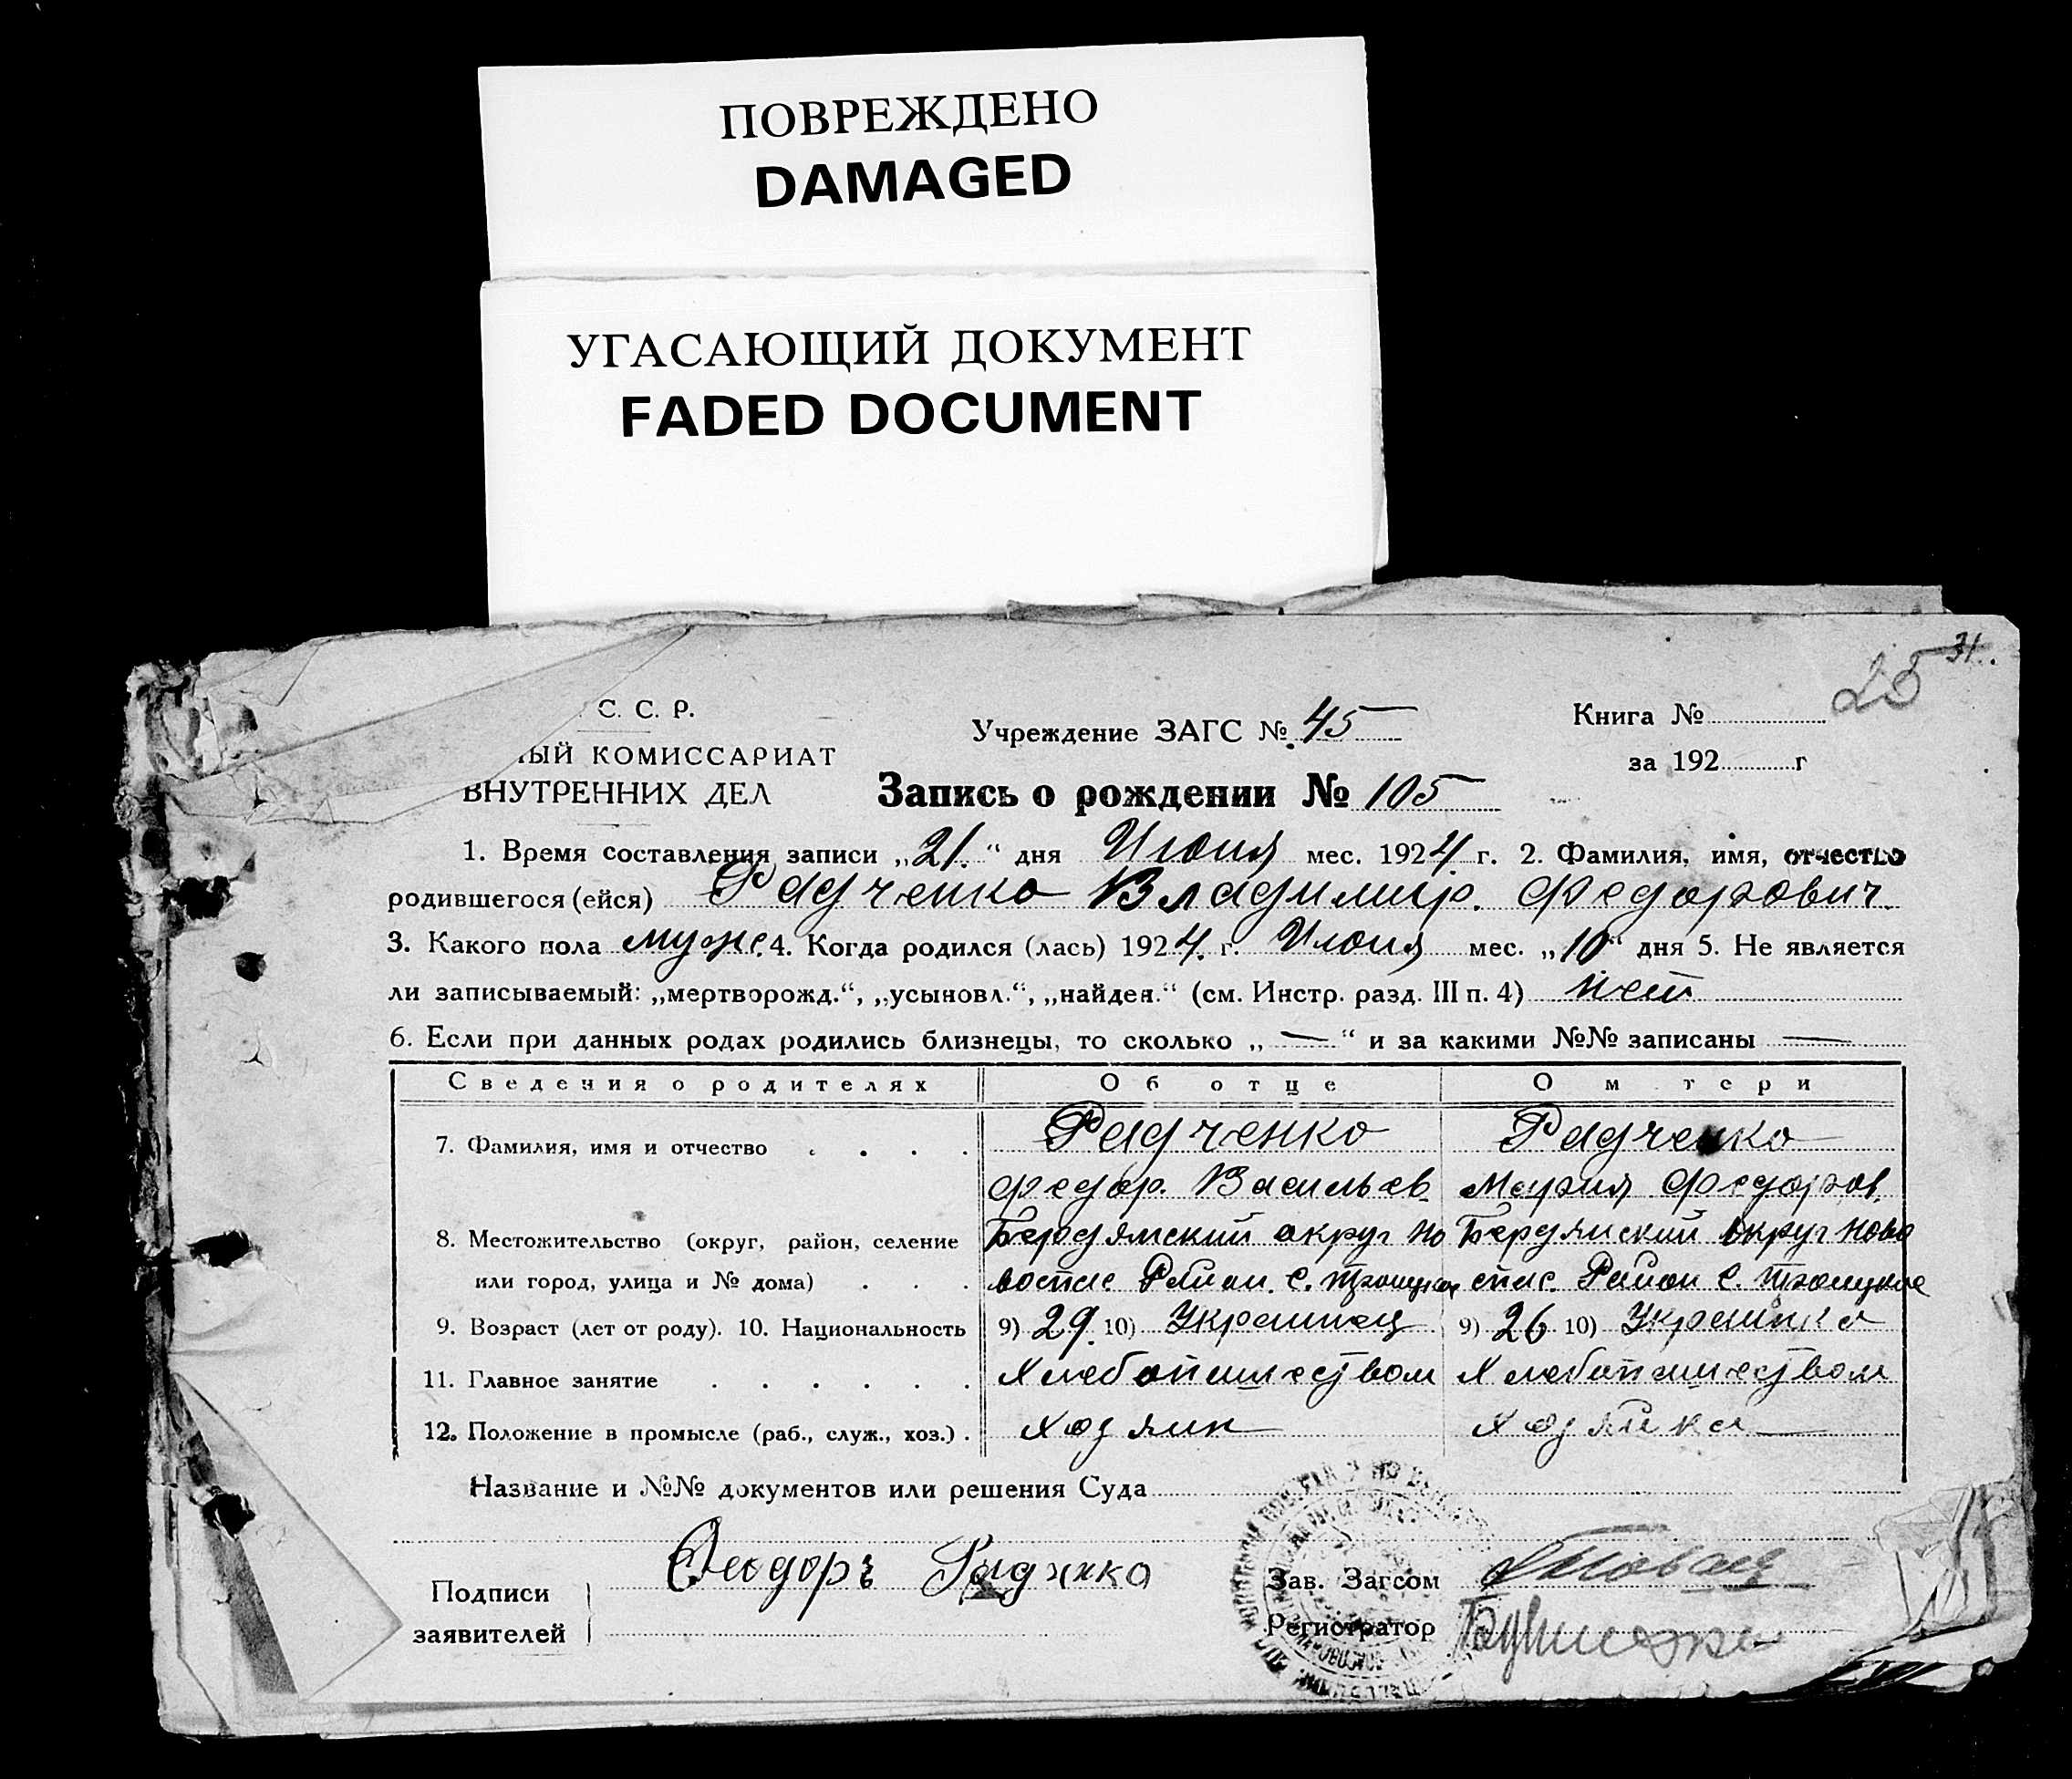 ПОВРЕЖДЕНО
DAMAGED
УГАСАЮЩИЙ ДОКУМЕНТ
FADED DOCUMENT
31.
25
С. С. Р.
ЫЙ КОМИССАРИАТ
ВНУТРЕННИХ ДЕЛ
Учреждение ЗАГС № 45
Книга №
за 192 г
Запись о рождении № 105
1. Время составления записи „21.“ дня Июня мес. 1924 г. 2. Фамилия, имя, отчество
родившегося (ейся) Радченко Владимир. Федорович.
3. Какого пола муж. 4. Когда родился (лась) 1924. г. Июня мес. „10“ дня 5. Не является
ли записываемый: „мертворожд.“, „усыновл.“, „найден.“ (см. Инстр. разд. III п. 4) нет
6. Если при данных родах родились близнецы, то сколько „—“ и за какими №№ записаны —
Сведения о родителях Об отце О м тери
7. Фамилия, имя и отчество . . . . Радченко Радченко
Федор. Васильев. Мария Федоров.
8. Местожительство (округ, район, селение Бердянский округ Но Бердянский округ Ново
или город, улица и № дома) . . . воспас. Район. С. Троицкое спас. Район С. Троицкое
9. Возраст (лет от роду). 10. Национальность 9) 29. 10) Украинец 9) 26 10) Украинка
11. Главное занятие . . . . . . Хлебопашеством Хлебопашеством
12. Положение в промысле (раб., служ., хоз.) . хозяин хозяйка
Название и №№ документов или решения Суда
Подписи
заявителей
Феодоръ Радченко
Зав. Загсом
Регистратор